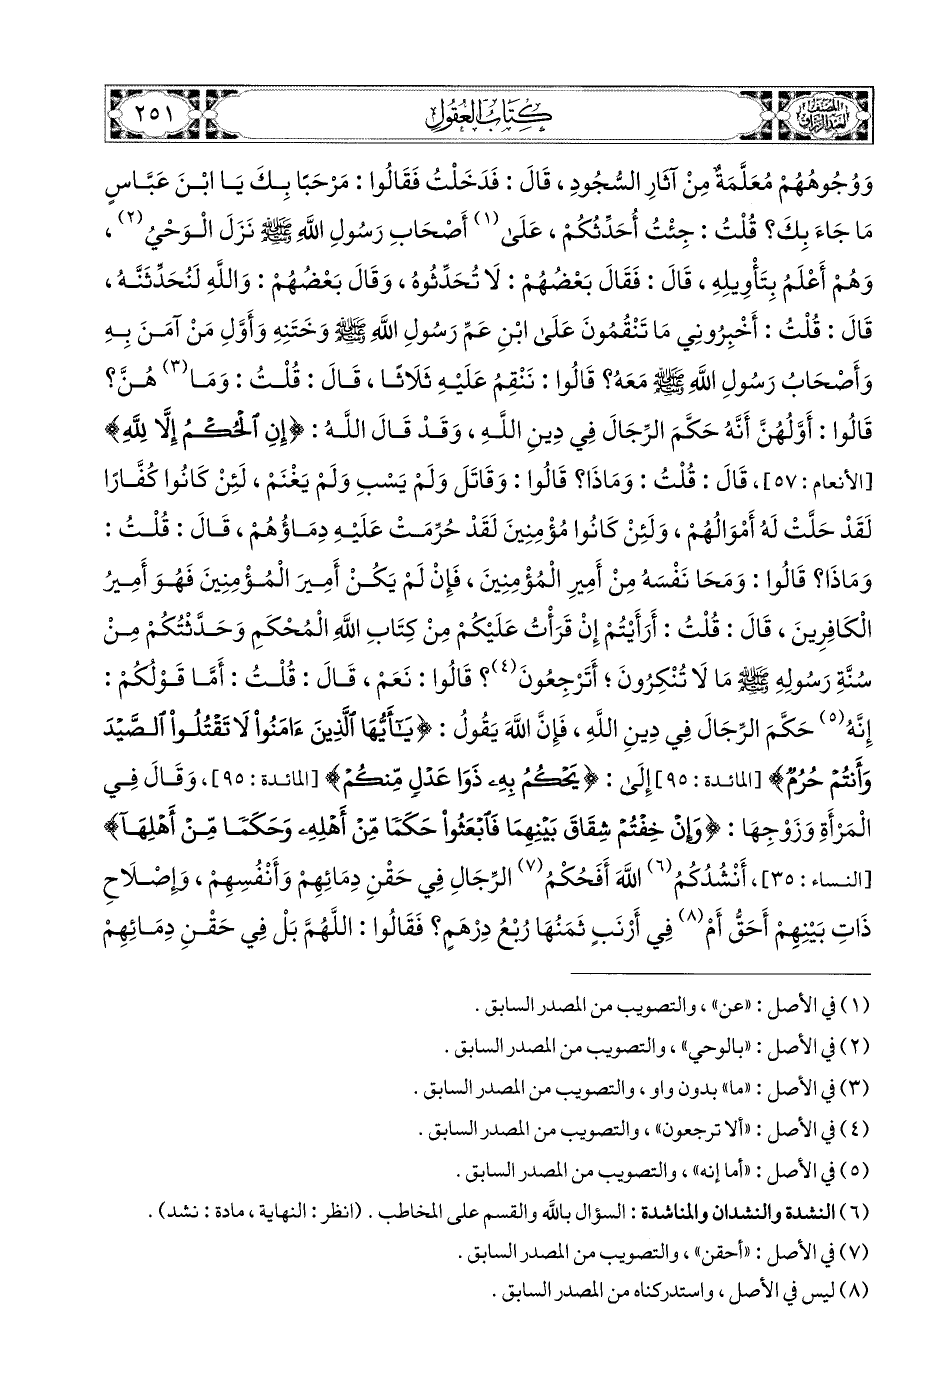 المصنف للإمام عبد الرزاق
كتاب العقول
٢٥١
وَوُجُوهُهُمْ مُعَلَّمَةٌ مِنْ آثَارِ السُّجُودِ ، قَالَ : فَدَخَلْتُ فَقَالُوا : مَرْحَبًا بِكَ يَا ابْنَ عَبَّاسٍ
مَا جَاءَ بِكَ؟ قُلْتُ : جِئْتُ أُحَدِّثُكُمْ ، عَلَى(١) أَصْحَابِ رَسُولِ اللَّهِ ﷺ نَزَلَ الْوَحْيُ(٢) ،
وَهُمْ أَعْلَمُ بِتَأْوِيلِهِ ، قَالَ : فَقَالَ بَعْضُهُمْ : لَا تُحَدِّثُوهُ ، وَقَالَ بَعْضُهُمْ : وَاللَّهِ لَنُحَدِّثَنَّهُ ،
قَالَ : قُلْتُ : أَخْبِرُونِي مَا تَنْقُمُونَ عَلَى ابْنِ عَمِّ رَسُولِ اللَّهِ ﷺ وَخَتَنِهِ وَأَوَّلِ مَنْ آمَنَ بِهِ
وَأَصْحَابُ رَسُولِ اللَّهِ ﷺ مَعَهُ؟ قَالُوا : نَنْقِمُ عَلَيْهِ ثَلَاثًا ، قَالَ : قُلْتُ : وَمَا(٣) هُنَّ؟
قَالُوا : أَوَّلُهُنَّ أَنَّهُ حَكَّمَ الرِّجَالَ فِي دِينِ اللَّهِ ، وَقَدْ قَالَ اللَّهُ : ﴿إِنِ ٱلْحُكْمُ إِلَّا لِلَّهِ﴾
[الأنعام : ٥٧] ، قَالَ : قُلْتُ : وَمَاذَا؟ قَالُوا : وَقَاتَلَ وَلَمْ يَسْبِ وَلَمْ يَغْنَمْ ، لَئِنْ كَانُوا كُفَّارًا
لَقَدْ حَلَّتْ لَهُ أَمْوَالُهُمْ ، وَلَئِنْ كَانُوا مُؤْمِنِينَ لَقَدْ حُرِّمَتْ عَلَيْهِ دِمَاؤُهُمْ ، قَالَ : قُلْتُ :
وَمَاذَا؟ قَالُوا : وَمَحَا نَفْسَهُ مِنْ أَمِيرِ الْمُؤْمِنِينَ ، فَإِنْ لَمْ يَكُنْ أَمِيرَ الْمُؤْمِنِينَ فَهُوَ أَمِيرُ
الْكَافِرِينَ ، قَالَ : قُلْتُ : أَرَأَيْتُمْ إِنْ قَرَأْتُ عَلَيْكُمْ مِنْ كِتَابِ اللَّهِ الْمُحْكَمِ وَحَدَّثْتُكُمْ مِنْ
سُنَّةِ رَسُولِهِ ﷺ مَا لَا تُنْكِرُونَ ؛ أَتَرْجِعُونَ(٤)؟ قَالُوا : نَعَمْ ، قَالَ : قُلْتُ : أَمَّا قَوْلُكُمْ :
إِنَّهُ(٥) حَكَّمَ الرِّجَالَ فِي دِينِ اللَّهِ ، فَإِنَّ اللَّهَ يَقُولُ : ﴿يَٰٓأَيُّهَا ٱلَّذِينَ ءَامَنُوا۟ لَا تَقْتُلُوا۟ ٱلصَّيْدَ
وَأَنتُمْ حُرُمٌ﴾ [المائدة : ٩٥] إِلَى : ﴿يَحْكُمُ بِهِۦ ذَوَا عَدْلٍ مِّنكُمْ﴾ [المائدة : ٩٥] ، وَقَالَ فِي
الْمَرْأَةِ وَزَوْجِهَا : ﴿وَإِنْ خِفْتُمْ شِقَاقَ بَيْنِهِمَا فَٱبْعَثُوا۟ حَكَمًا مِّنْ أَهْلِهِۦ وَحَكَمًا مِّنْ أَهْلِهَآ﴾
[النساء : ٣٥] ، أَنْشُدُكُمُ(٦) اللَّهَ أَفَحُكْمُ(٧) الرِّجَالِ فِي حَقْنِ دِمَائِهِمْ وَأَنْفُسِهِمْ ، وَإِصْلَاحِ
ذَاتِ بَيْنِهِمْ أَحَقُّ أَمْ(٨) فِي أَرْنَبٍ ثَمَنُهَا رُبْعُ دِرْهَمٍ؟ فَقَالُوا : اللَّهُمَّ بَلْ فِي حَقْنِ دِمَائِهِمْ
(١) في الأصل : «عن» ، والتصويب من المصدر السابق .
(٢) في الأصل : «بالوحي» ، والتصويب من المصدر السابق .
(٣) في الأصل : «ما» بدون واو ، والتصويب من المصدر السابق .
(٤) في الأصل : «ألا ترجعون» ، والتصويب من المصدر السابق .
(٥) في الأصل : «أما إنه» ، والتصويب من المصدر السابق .
(٦) النشدة والنشدان والمناشدة : السؤال بالله والقسم على المخاطب . (انظر : النهاية ، مادة : نشد) .
(٧) في الأصل : «أحقن» ، والتصويب من المصدر السابق .
(٨) ليس في الأصل ، واستدركناه من المصدر السابق .